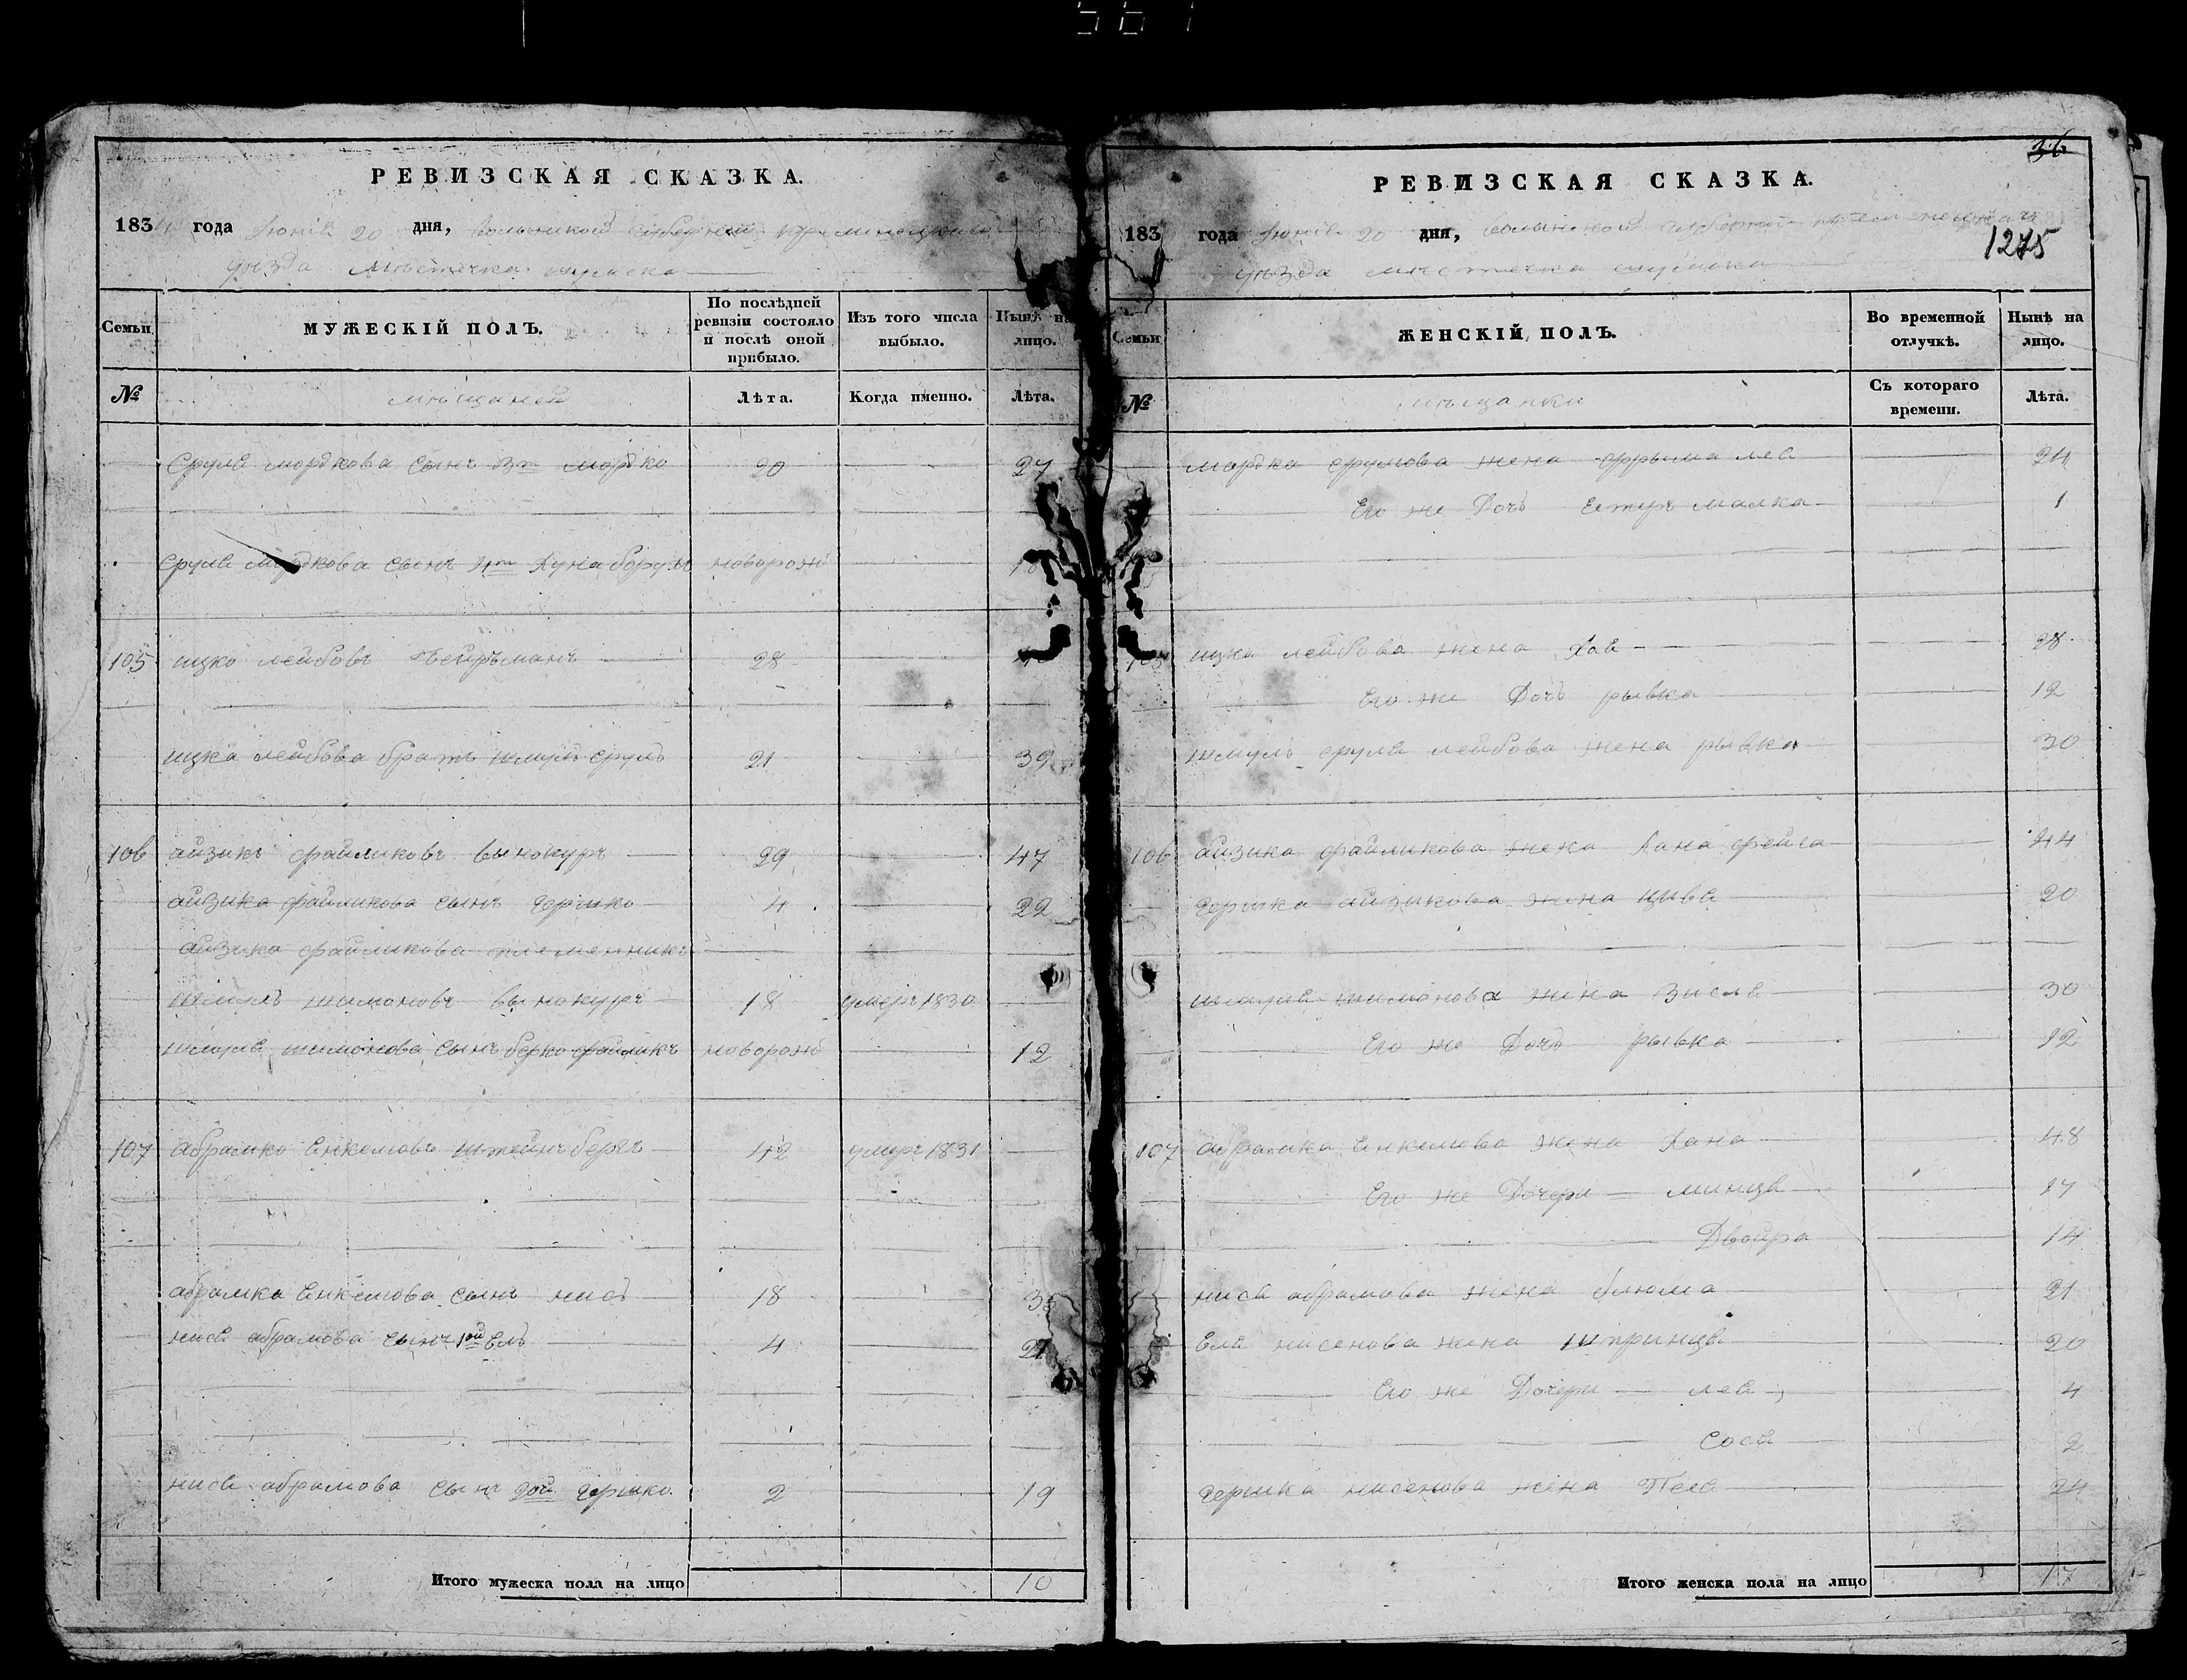 РЕВИЗСКАЯ СКАЗКА.
1834 года Июня 20 дня, Волынской Губернии Кременецкаго
уезда местечка
Семьи
МУЖЕСКІЙ ПОЛЪ.
По послѣдней ревизіи состояло и послѣ оной прибыло.
Изъ того числа выбыло.
Нынѣ на лицо.
№
мещане
Лѣта.
Когда именно.
Лѣта.
Сруля мордкова сынъ 3й мордко 20 27
Сруля мордкова сынъ новорож
105 ицко лейбовъ 28
ицка лейбова братъ шмуль сруль 21 39
106 айзикъ файликовъ винокуръ 29 47
айзика файликова сынъ гершко 4 22
айзика файликова племенникъ
шмуль шимоновъ винокуръ 18 умеръ 1830
шмуля шимонова сынъ берко файликъ новорож 12
107 абрамко Енкелевъ штейнъбергъ 42 умеръ 1831
абрамка Енкелева сынъ нисъ 18
нися абрамова сынъ 1ой Ель 4 21
нися абрамова сынъ 2ой гершко. 2 19
Итого мужеска пола на лицо 10
36
РЕВИЗСКАЯ СКАЗКА.
183 года Июня 20 дня, Волынской Губернии
1275
уезда местечка
Семьи
ЖЕНСКІЙ ПОЛЪ.
Во временной отлучкѣ.
Нынѣ на лицо.
№
мещанки
Съ котораго времени.
Лѣта.
мордка срулова жена фрыма лея 24
Его же Дочь Естеръ малка 1
105 ицка лейбова жена Хая 28
Его же Дочь рывка 12
шмуль сруля лейбова жена рывка 30
106 айзика файликова жена Хана фейга 44
гершка айзикова жена цивя 20
шмуля шимонова жена зисля 30
Его же Дочь рывка 12
107 абрамка Енкелева жена Хана 48
Его же Дочери минця 17
Двойра 14
нися абрамова жена блюма 21
Еля нисенова жена шпринця 20
Его же Дочери лея 4
Сося 2
гершка нисенова жена Песя 24
Итого женска пола на лицо 17